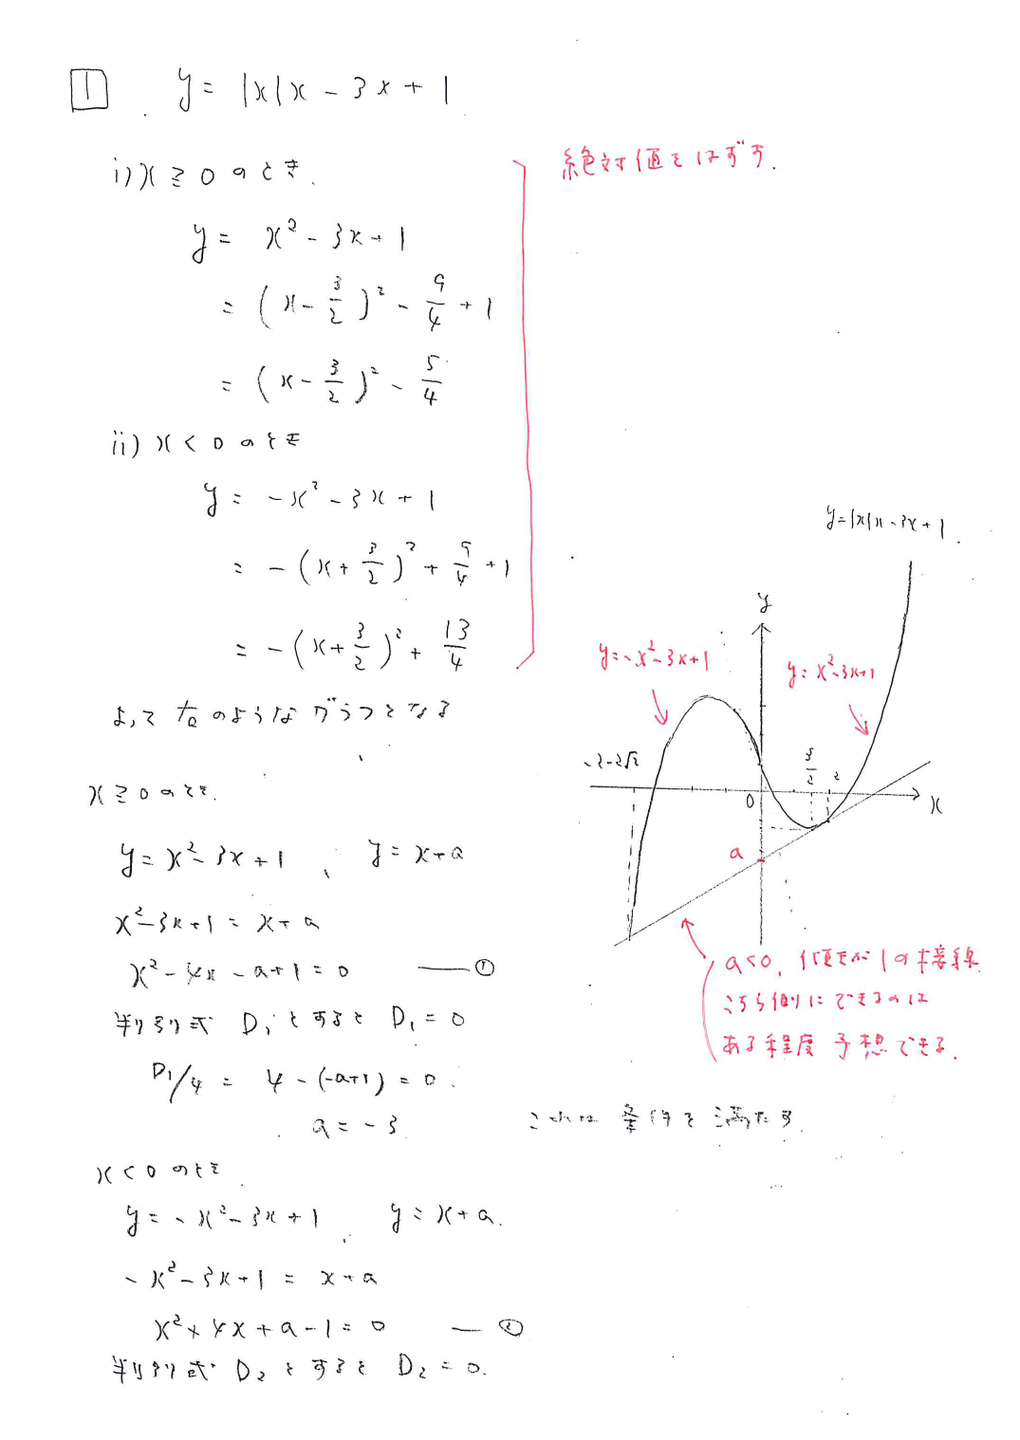 1 y = |x|x - 3x + 1
絶対値をはずす.
i) x ≧ 0 のとき.
y = x² - 3x + 1
= (x - 3/2)² - 9/4 + 1
= (x - 3/2)² - 5/4
ii) x < 0 のとき
y = -x² - 3x + 1
= -(x + 3/2)² + 9/4 + 1
= -(x + 3/2)² + 13/4
よって右のようなグラフとなる
y = |x|x - 3x + 1.
y
y = -x² - 3x + 1
y = x² - 3x + 1
-2-2√2
3/2
2
0
x
a
a<0, 傾きが1の接線
こちら側にできるのは
ある程度 予想できる.
x ≧ 0 のとき.
y = x² - 3x + 1, y = x + a
x² - 3x + 1 = x + a
x² - 4x - a + 1 = 0 ― ①
判別式 D₁とすると D₁ = 0
D₁/4 = 4 - (-a+1) = 0.
a = -3 これは 条件を満たす.
x < 0 のとき
y = -x² - 3x + 1, y = x + a.
-x² - 3x + 1 = x + a
x² + 4x + a - 1 = 0 ― ②
判別式 D₂とすると D₂ = 0.